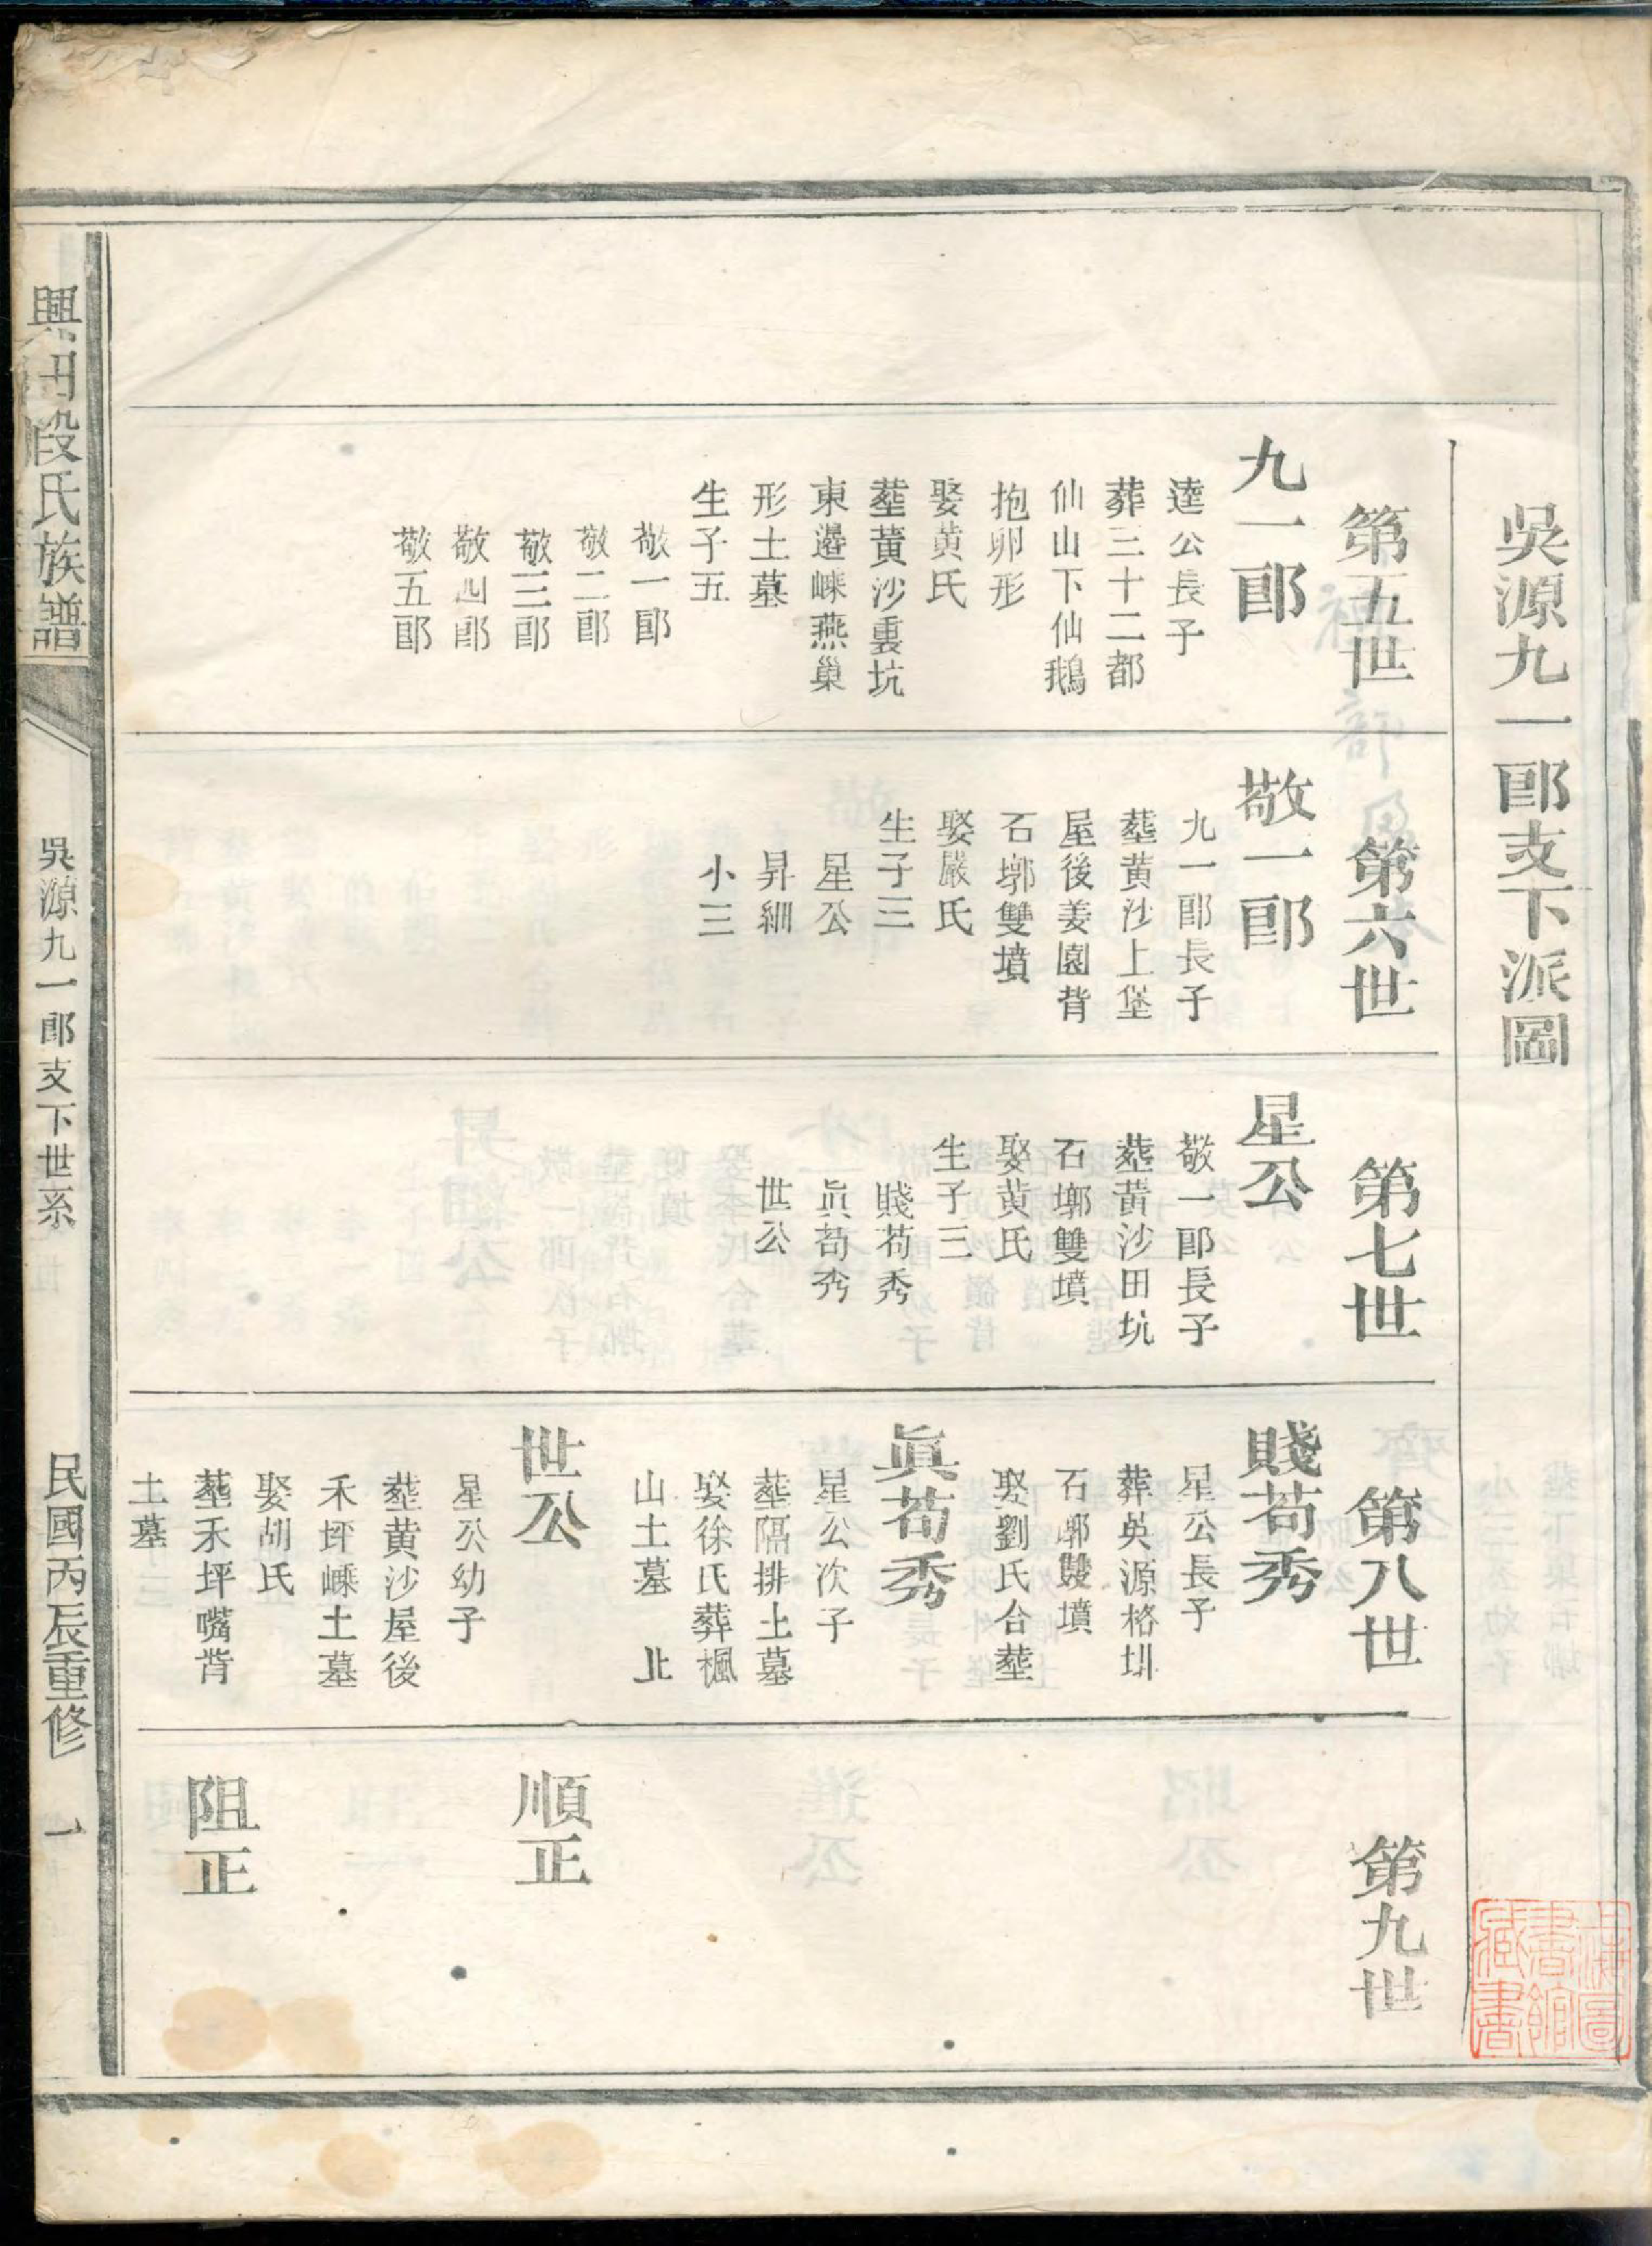 吳源九一郎支下派圖
第五世
九一郎
達公長子
葬三十二都
仙山下仙鵝
抱卵形
娶黄氏
塟黄沙裏坑
東邊嵊燕巢
形土墓
生子五
敬一郎
敬二郎
敬三郎
敬四郎
敬五郎
第六世
敬一郎
九一郎長子
塟黄沙上堡
屋後姜園背
石墎雙墳
娶嚴氏
生子三
星公
昇細
小三
第七世
星公
敬一郎長子
塟黄沙田坑
石墎雙墳
娶黄氏
生子三
賤苟秀
眞苟秀
世公
第八世
賤苟秀
星公長子
葬吳源格圳
石墎雙墳
娶劉氏合塟
眞苟秀
星公次子
塟隔排土墓
娶徐氏葬楓
山土墓 北
世公
星公幼子
塟黄沙屋後
禾坪嵊土墓
娶胡氏
塟禾坪嘴背
土墓
第九世
順正
阻正
興田段氏族譜
吳源九一郎支下世系
民國丙辰重修
一
上海圖
書館
藏書